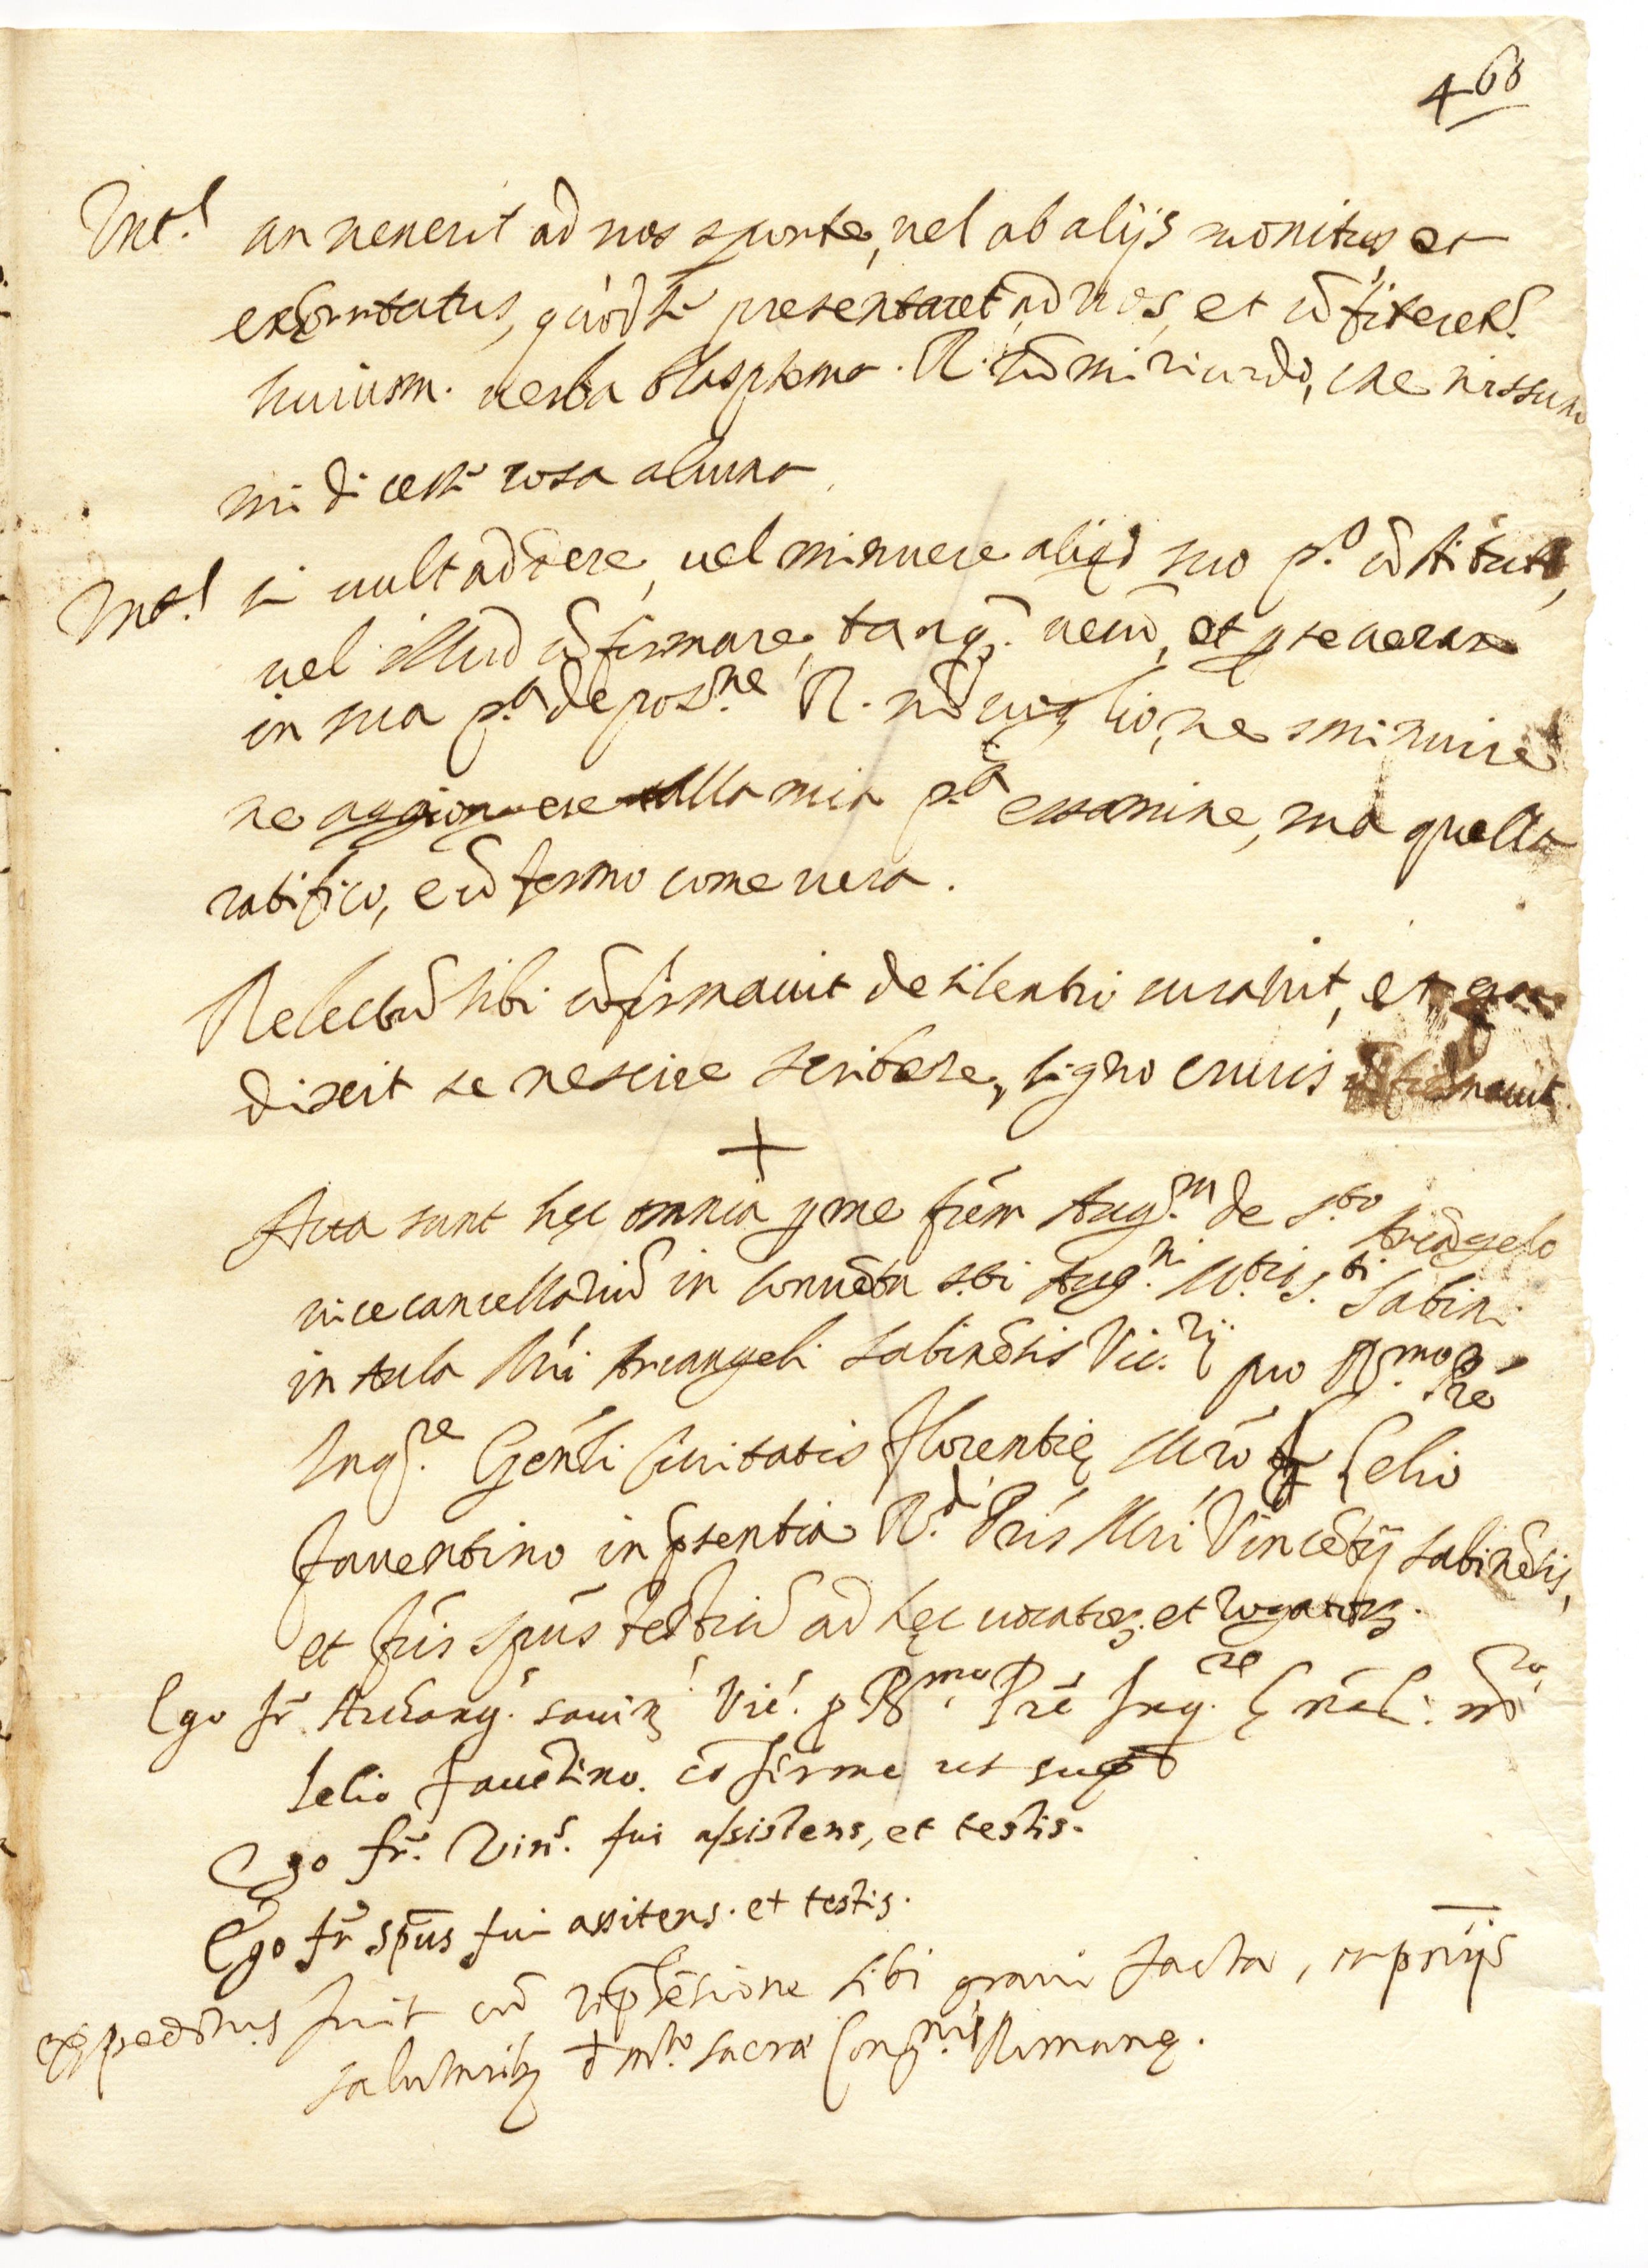 466
Int.s an venerit ad nos sponte, vel ab alijs monitus, et
exhortatus, quod se presentaret ad nos, et cōfiteret.r
huiusm. verba blasphema. R. nō mi ricordo, che nissuno
mi dicesse cosa alcuna.
Int.s si vult addere, vel minuere aliqd suo p.o cōstituto,
vel illud cōfirmare, tanq. verū, et perseverare
in sua p.a depos.ne R. nō voglio, ne sminuire
ne aggiongere alla mia p.a essamine, ma quella
ratifico, e cōfermo come vera.
Relectū sibi cōfirmavit de silentio iuravit, et quia
dixit se nescire scribere, signo crucis cōfirmavit.
+
Acta sunt hęc omnia p me frēm Aug.m de S.to Arcāgelo
vicecancellariū in Convētu S.ti Aug.ni Mōtis S.ti Sabini
in Aula Mri Arcangeli Sabinēsis Vic.rij pro R.mo Prē
Inq.re Gēnli Civitatis Florentię Mrō f. Lelio
faventino in pñsentia R.di Pris Mri Vincētij Sabinēsis,
et fris Spūs testiū ad hęc vocatorꝫ et rogatorꝫ.
Ego fr. Archang. savinꝫ Vic. p R.mo Prē Inq.re Gñal. M.ro
Lelio Favētino. cōfirmo ut supra
Ego fr. Vin. fui assistens, et testis.
Ego fr. Spūs fui assitens. et testis.
expeditus fuit cū rephēsione sibi gravi facta, et pnijs
salutaribꝫ d m.to Sacrae Cong.nis Romanę.